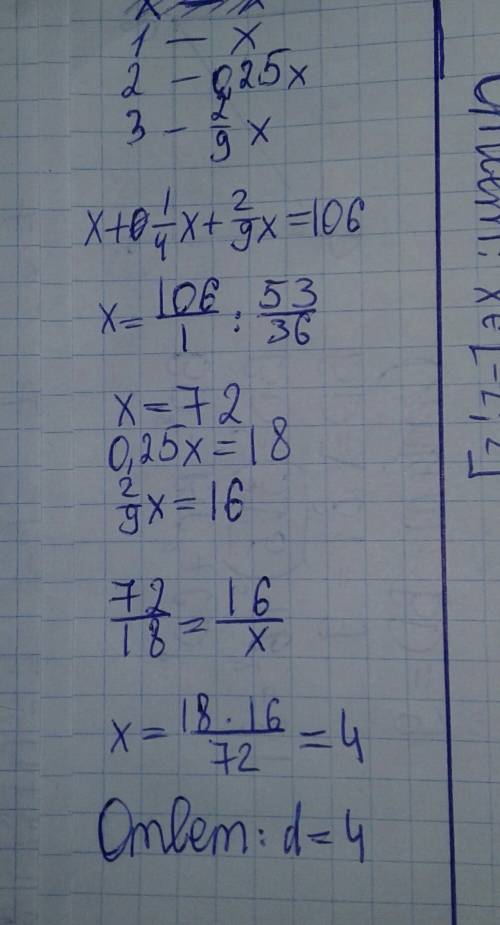 1 — x
2 — 0,25x
3 — 2/9 x
x + 1/4 x + 2/9 x = 106
x = 106/1 : 53/36
x = 72
0,25x = 18
2/9 x = 16
72/18 = 16/x
x = 18 · 16/72 = 4
Ответ: d = 4